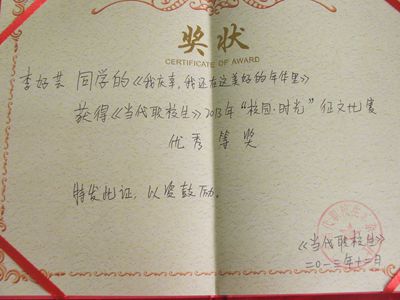 奖状
CERTIFICATE OF AWARD
李好芸 同学的《我庆幸,我还在这美好的年华里》
获得《当代职校生》2013年“校园·时光”征文比赛
优秀等奖
特发此证,以资鼓励。
《当代职校生》
二〇一三年十二月